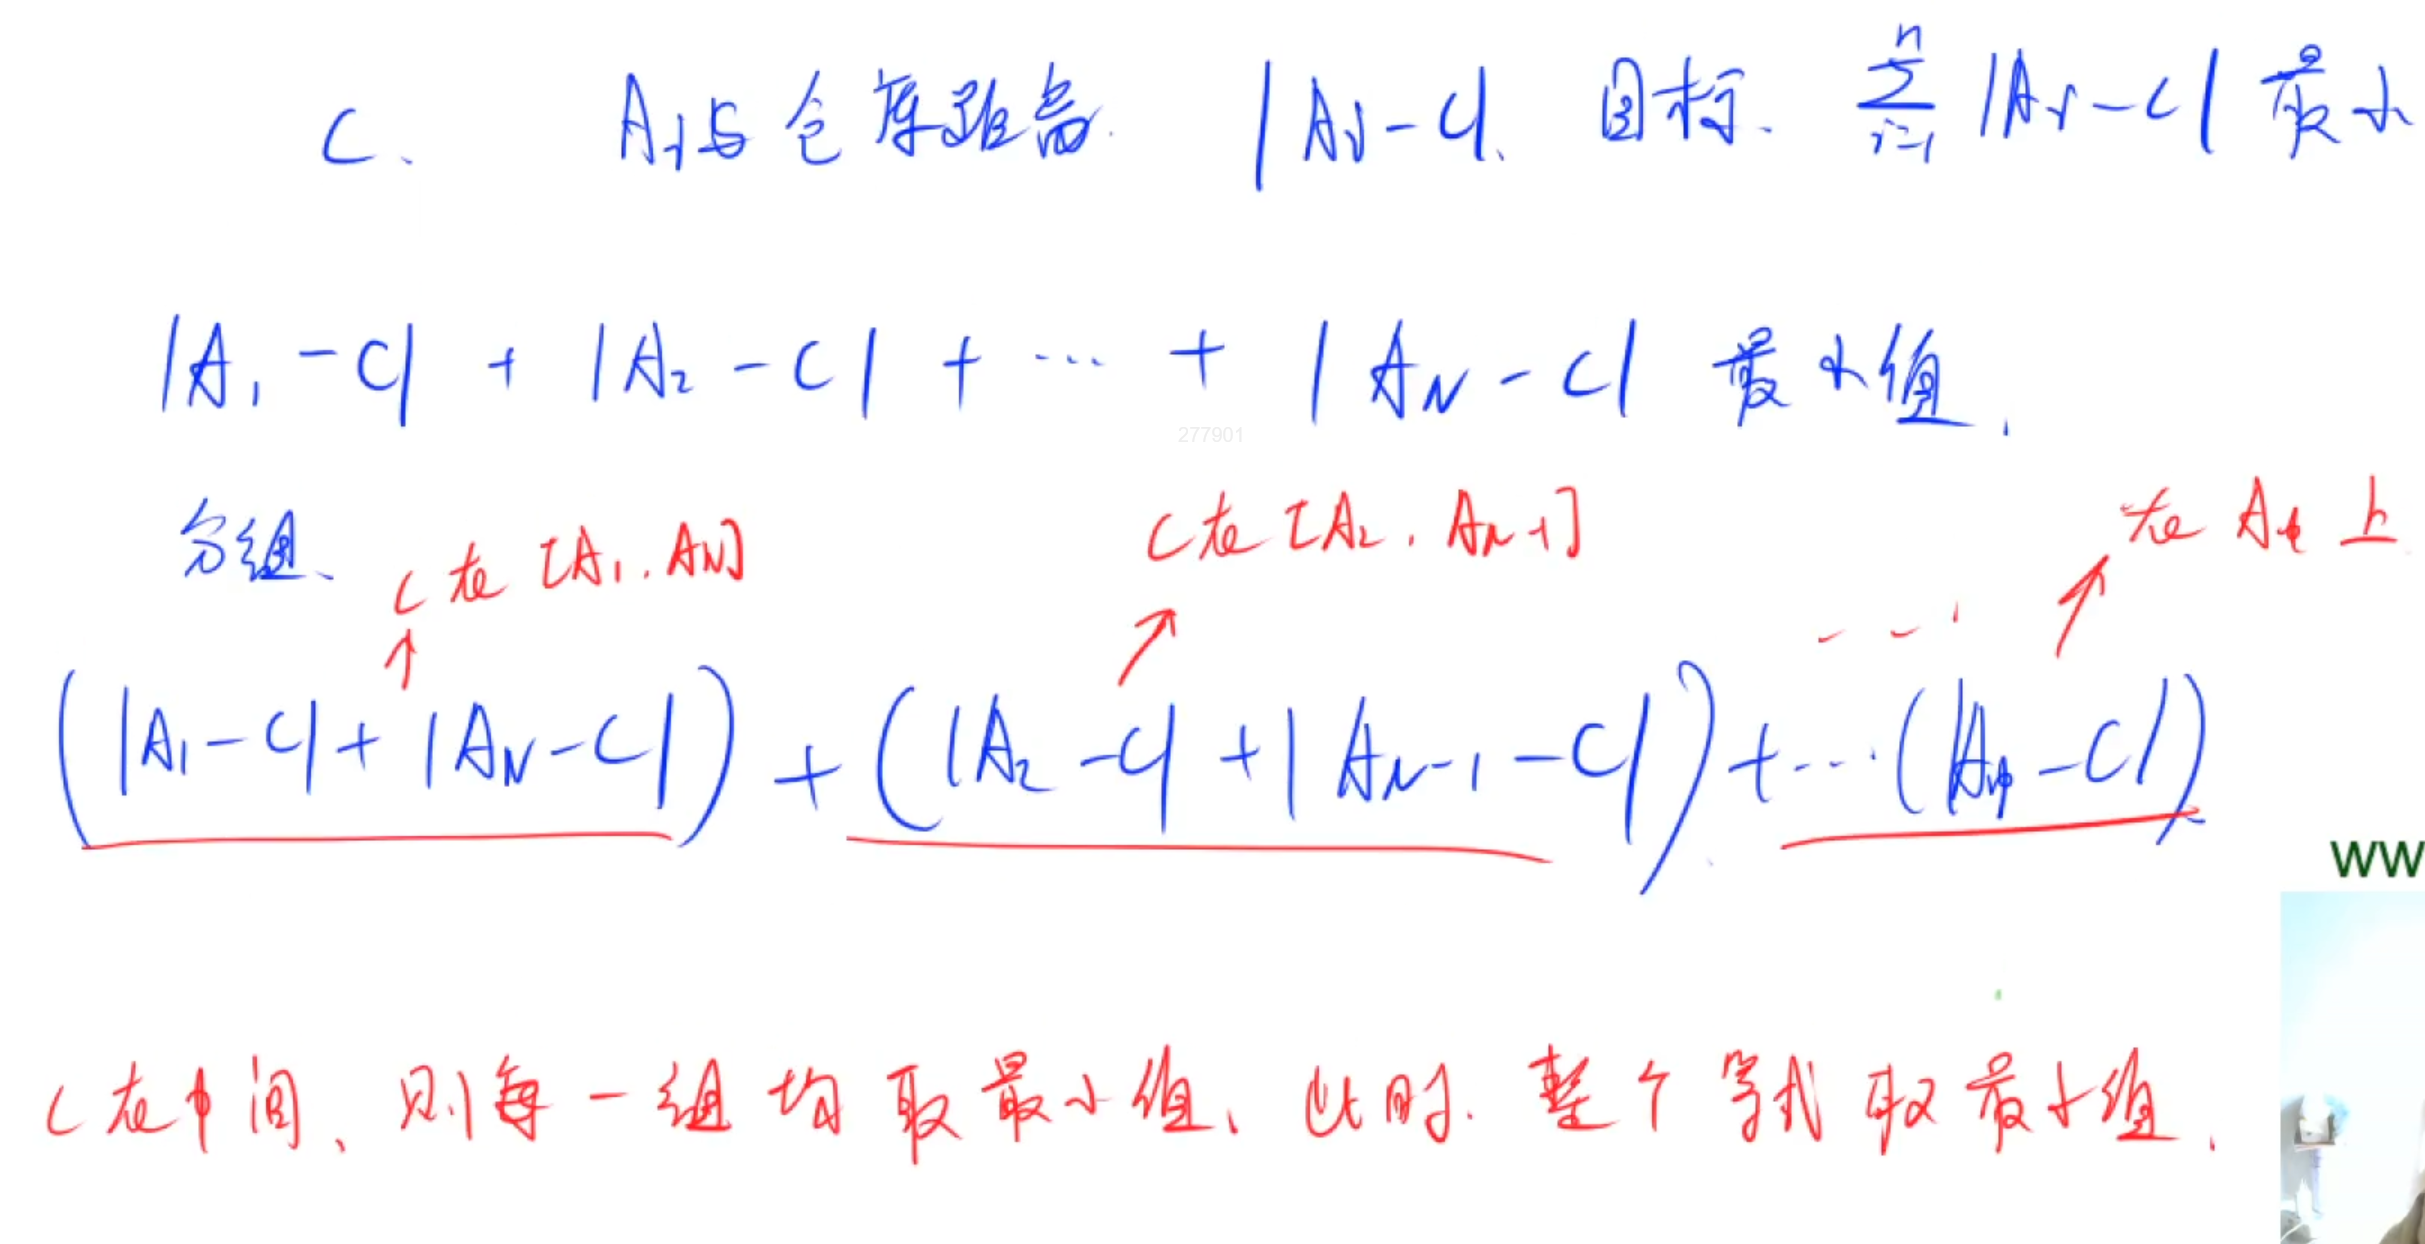 C. Ai与仓库距离. |Ai-C|. 目标. \sum_{i=1}^{n} |Ai-C| 最小
|A₁-C| + |A₂-C| + … + |A_N-C| 最小值.
277901
分组、 C在[A₁, A_N] C在[A₂, A_{N-1}] 在A中上
(|A₁-C|+|A_N-C|)+(|A₂-C|+|A_{N-1}-C|)+…(|A中-C|)
ww
C在中间、则每一组均取最小值、此时. 整个等式取最小值.